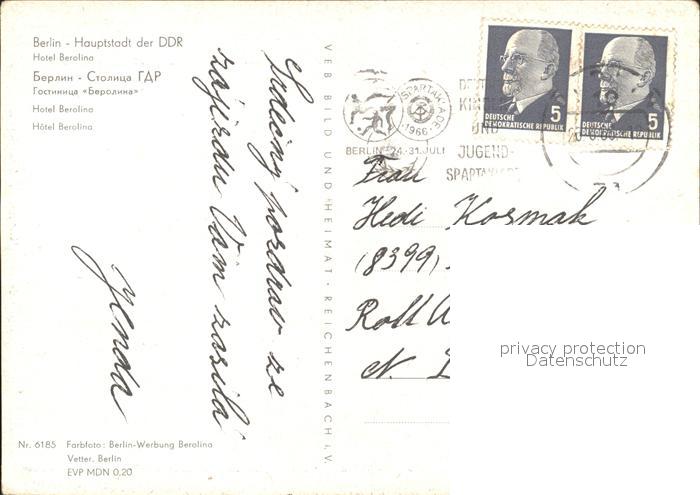 Berlin - Hauptstadt der DDR
Hotel Berolina
Берлин - Столица ГДР
Гостиница «Беролина»
Hotel Berolina
Hôtel Berolina
Srdečný pozdrav ze
zájezdu Vám zasílá
Jenda
Nr. 6185 Farbfoto: Berlin-Werbung Berolina
Vetter, Berlin
EVP MDN 0,20
VEB BILD UND HEIMAT · REICHENBACH i. V.
SPARTAKIADE
1966
BERLIN 24.-31. JULI
KIN
UND
JUGEND-
SPARTAKIADE
5
DEUTSCHE
DEMOKRATISCHE REPUBLIK
5
DEUTSCHE
DEMOKRATISCHE REPUBLIK
Frau
Hedi Kosmak
(8399)
Rott
N.
privacy protection
Datenschutz